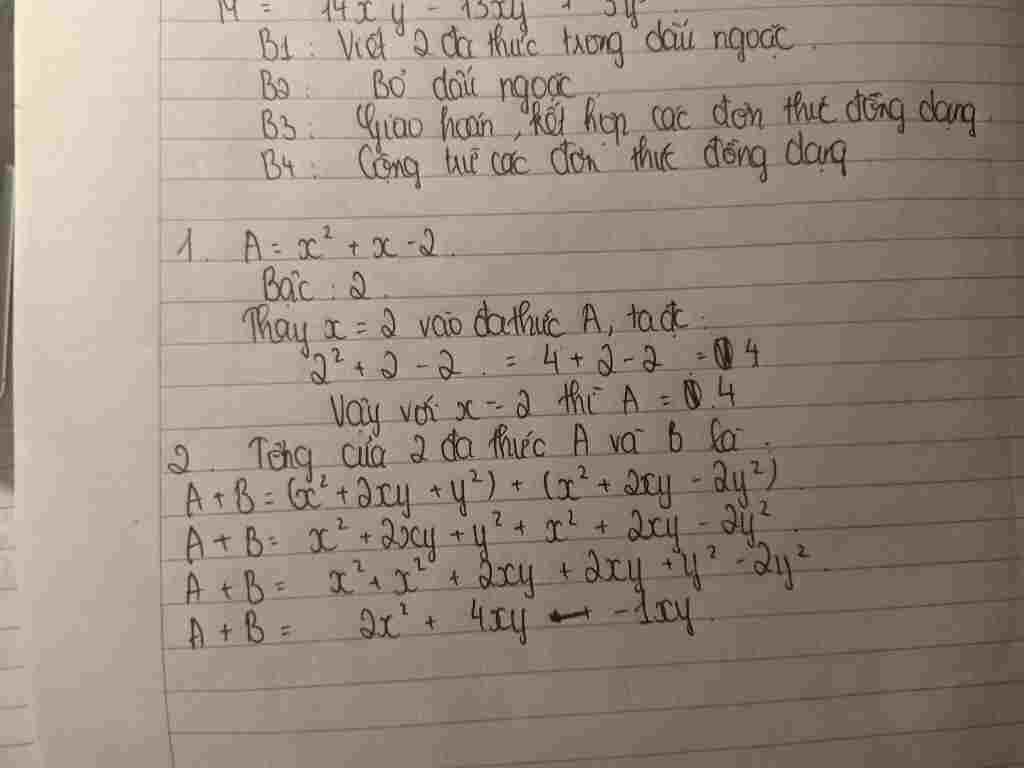 M = 14xy - 13xy
B1 : Viết 2 đa thức trong dấu ngoặc.
B2 : Bỏ dấu ngoặc
B3 : Giao hoán, kết hợp các đơn thức đồng dạng.
B4 : Cộng trừ các đơn thức đồng dạng
1. A = x² + x - 2.
Bậc : 2.
Thay x = 2 vào đa thức A, ta đc :
2² + 2 - 2 . = 4 + 2 - 2 = 4
Vậy với x = 2 thì A = . 4
2. Tổng của 2 đa thức A và B là :
A + B = (x² + 2xy + y²) + (x² + 2xy - 2y²)
A + B = x² + 2xy + y² + x² + 2xy - 2y².
A + B = x² + x² + 2xy + 2xy + y² - 2y².
A + B = 2x² + 4xy - 1xy.